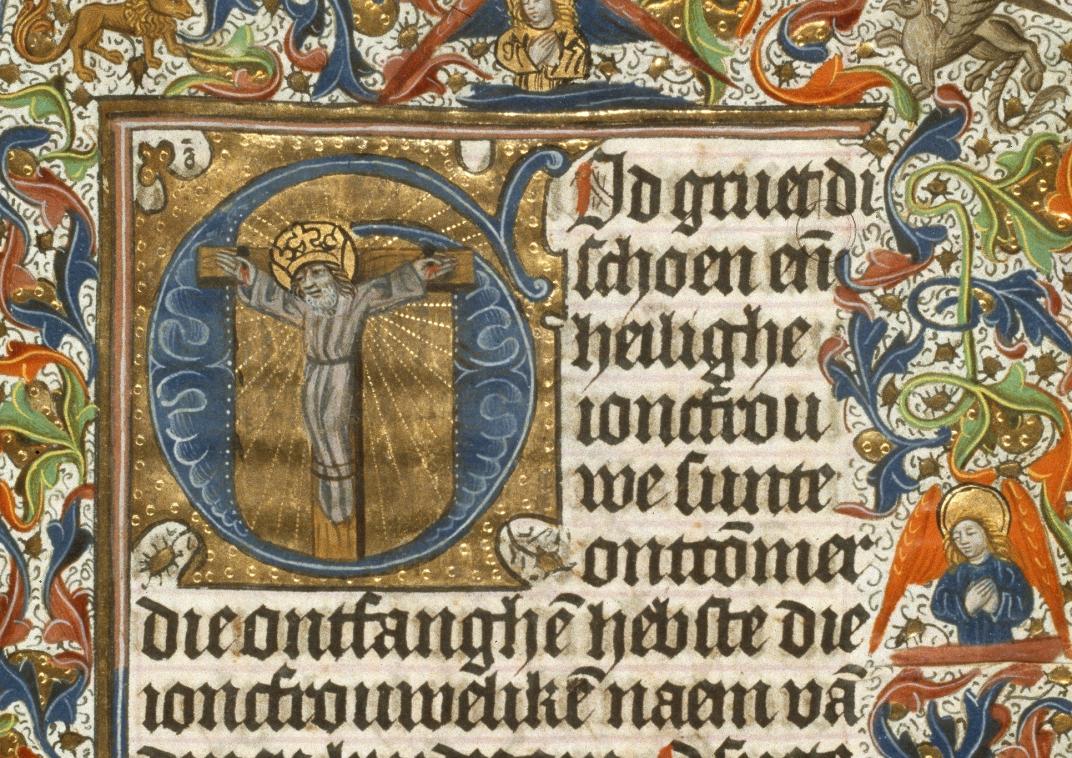 Id gruet di
schoen en̄
heilighe
ionctfrou
we sunte
ontcōmer
die ontfanghē hebste die
ionctfrouwelikē naem vā